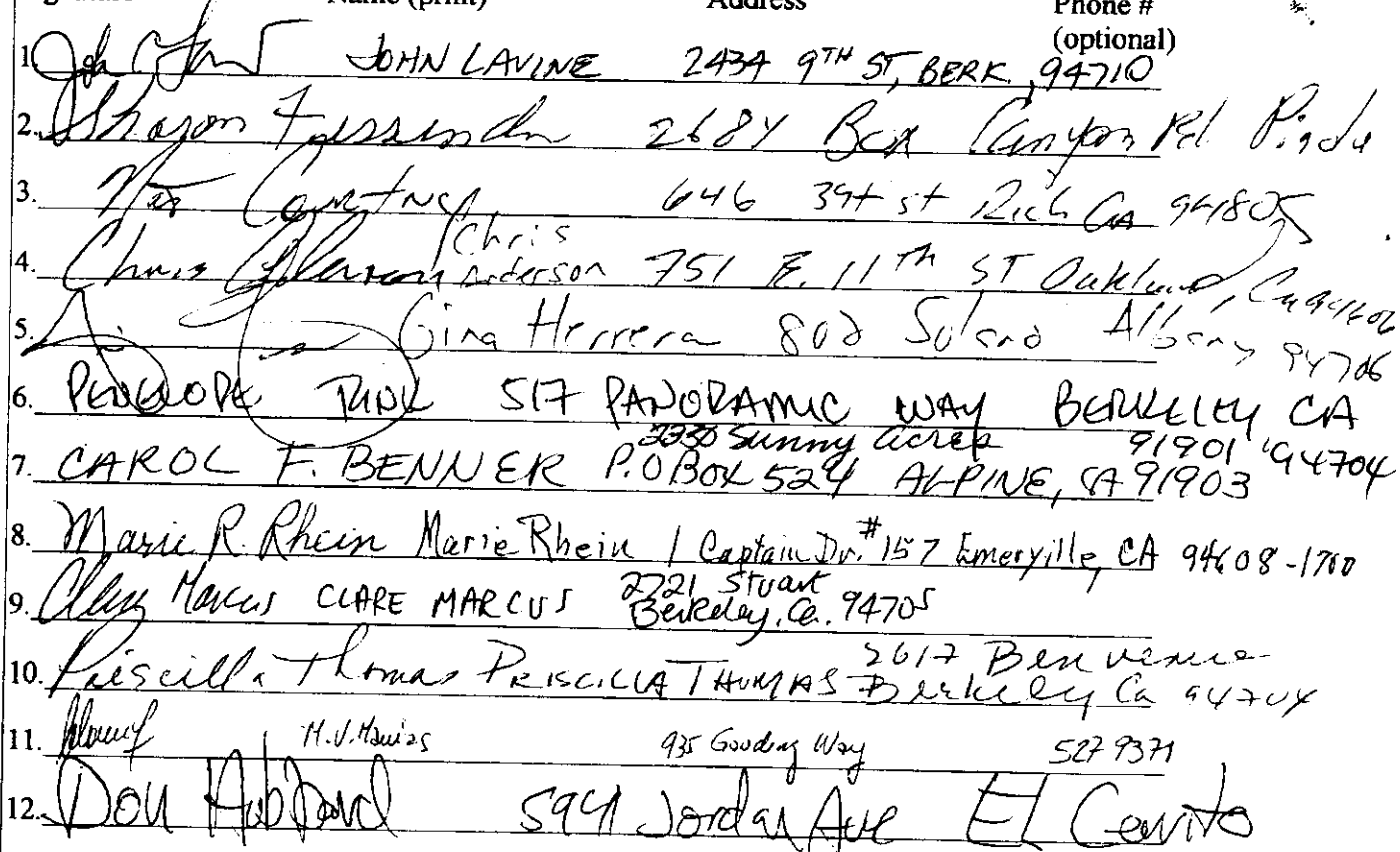 Name (print) Address Phone #
(optional)
1. JOHN LAVINE 2434 9TH ST, BERK, 94710
2. Sharon Fessenden 2684 Box Canyon Rd
3. Courtney 646 39th st Rich CA 94805
4. Chris Anderson Chris Anderson 751 E. 11th ST Oakland, Ca 94606
5. Gina Herrera 802 Solano Albany 94706
6. PENELOPE 517 PANORAMIC WAY BERKELEY CA 94704
2330 Sunny Acres 91901
7. CAROL F. BENNER P.O BOX 524 ALPINE, CA 91903
8. Marie R. Rhein Marie Rhein 1 Captain Dr. #157 Emeryville, CA 94608-1700
9. Clare Marcus CLARE MARCUS 2721 Stuart
Berkeley, Ca. 94705
10. Priscilla Thomas PRISCILLA THOMAS 2617 Benvenue
Berkeley Ca 94704
11. M.V. 935 Gooding Way 527 9371
12. Don Hubbard 5941 Jordan Ave El Cerrito